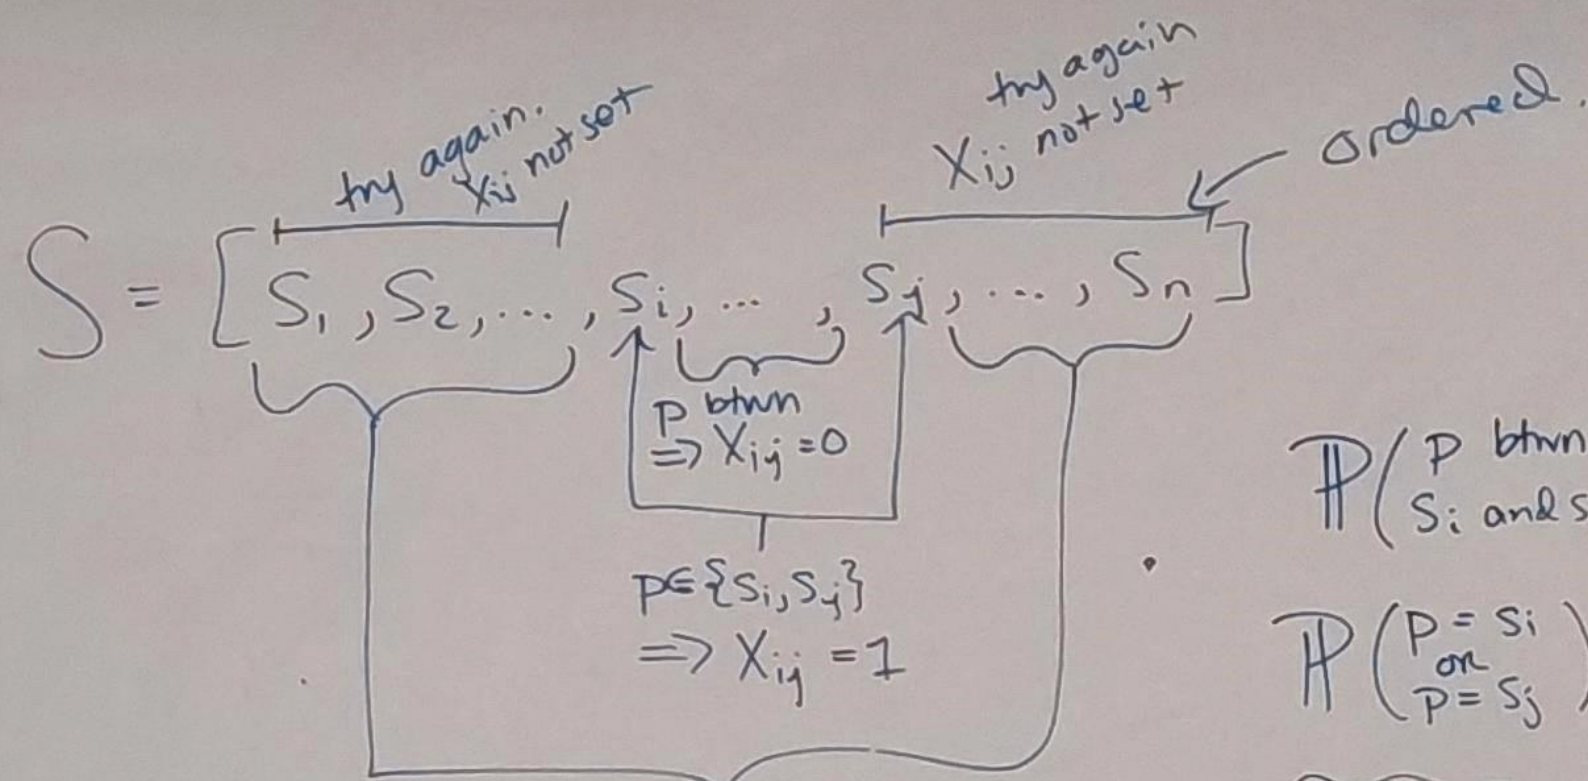 try again.
Xij not set
try again
Xij not set
ordered.
S = [S1, S2, ..., Si, ..., Sj, ..., Sn]
P btwn
=> Xij = 0
P∈{Si, Sj}
=> Xij = 1
ℙ( P btwn
Si and S
ℙ( P = Si )
or
P = Sj